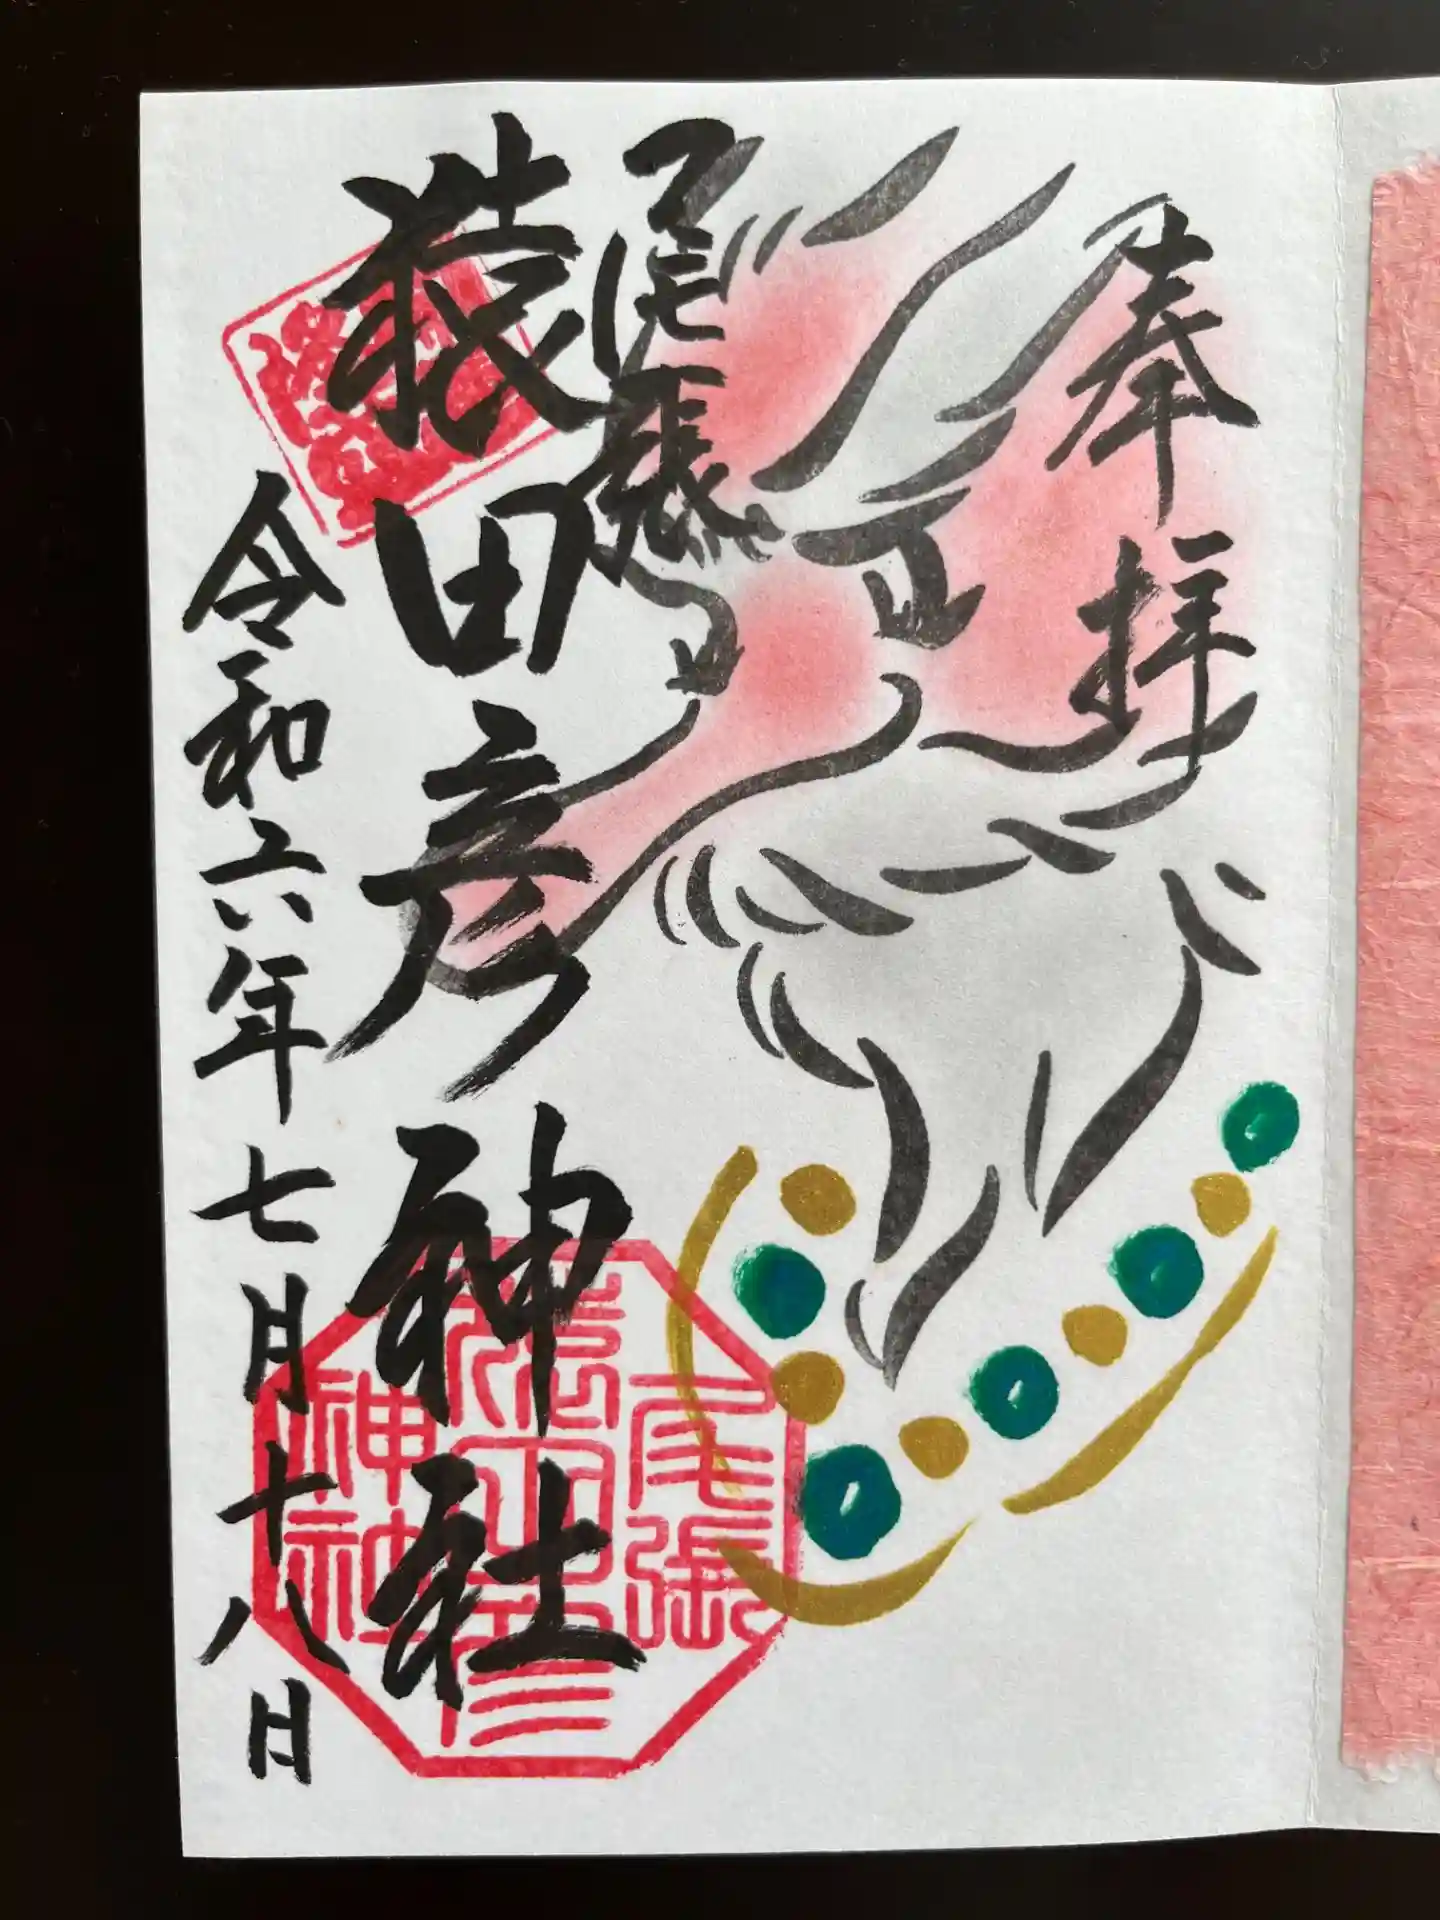 奉拝
尾張
猿田彦神社
令和六年七月十八日
尾張
猿田彦
神社